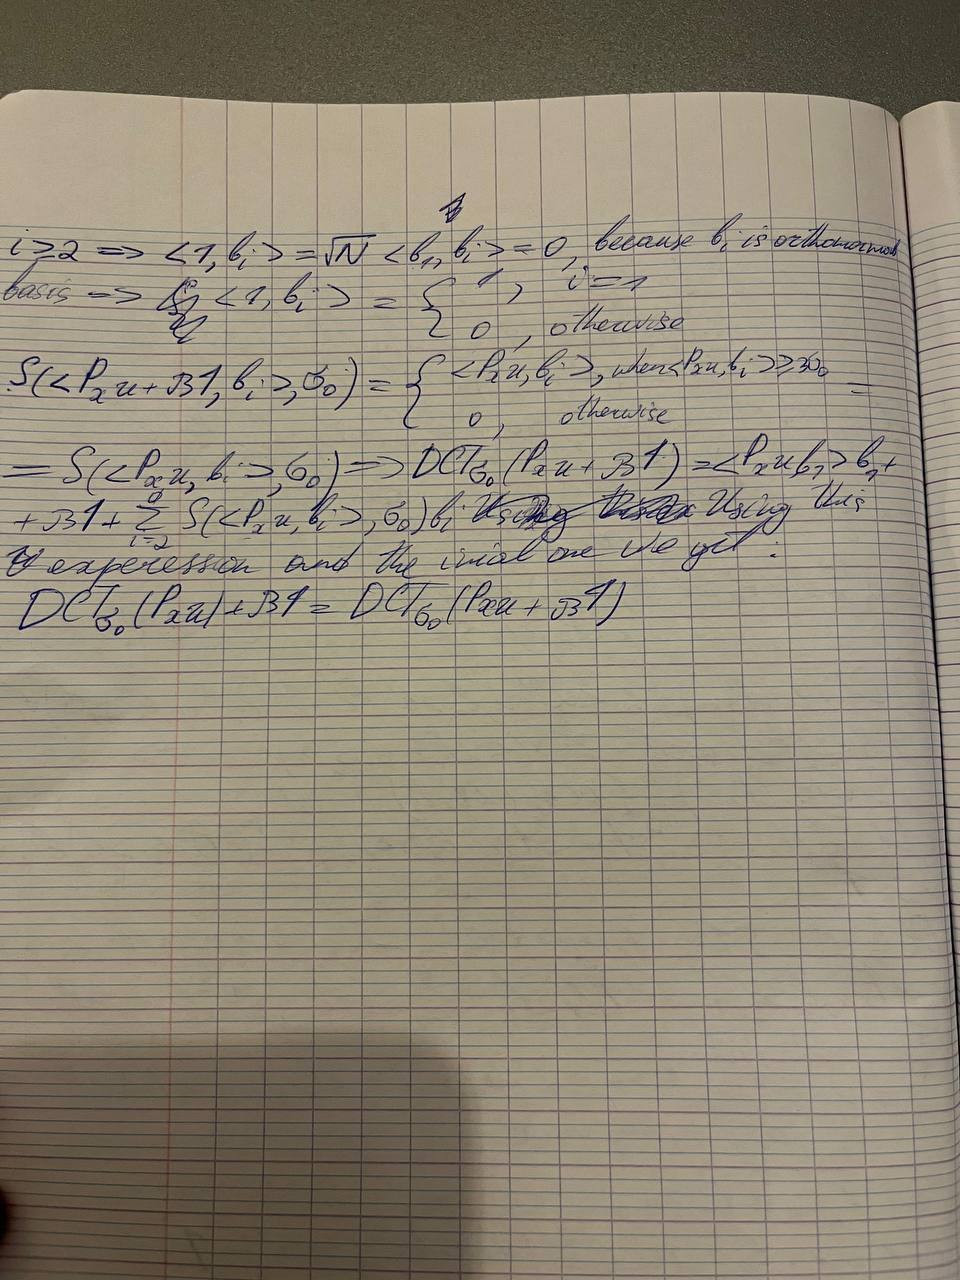 i ≥ 2 => <1, b_i> = √N <b_1, b_i> = 0, because b_i is orthonormal
basis => <1, b_i> = { 1, i = 1
0, otherwise
S(<P_x u + β1, b_i>, σ_0) = { <P_x u, b_i>, when <P_x u, b_i> ≥ 3σ_0 =
0, otherwise
= S(<P_x u, b_i>, σ_0) => DCT_σ_0 (P_x u + β1) = <P_x u b_1> b_1 +
+ β1 + Σ_{i=2} S(<P_x u, b_i>, σ_0) b_i Using this
experession and the inial one we get:
DCT_σ_0 (P_x u) + β1 = DCT_σ_0 (P_x u + β1)